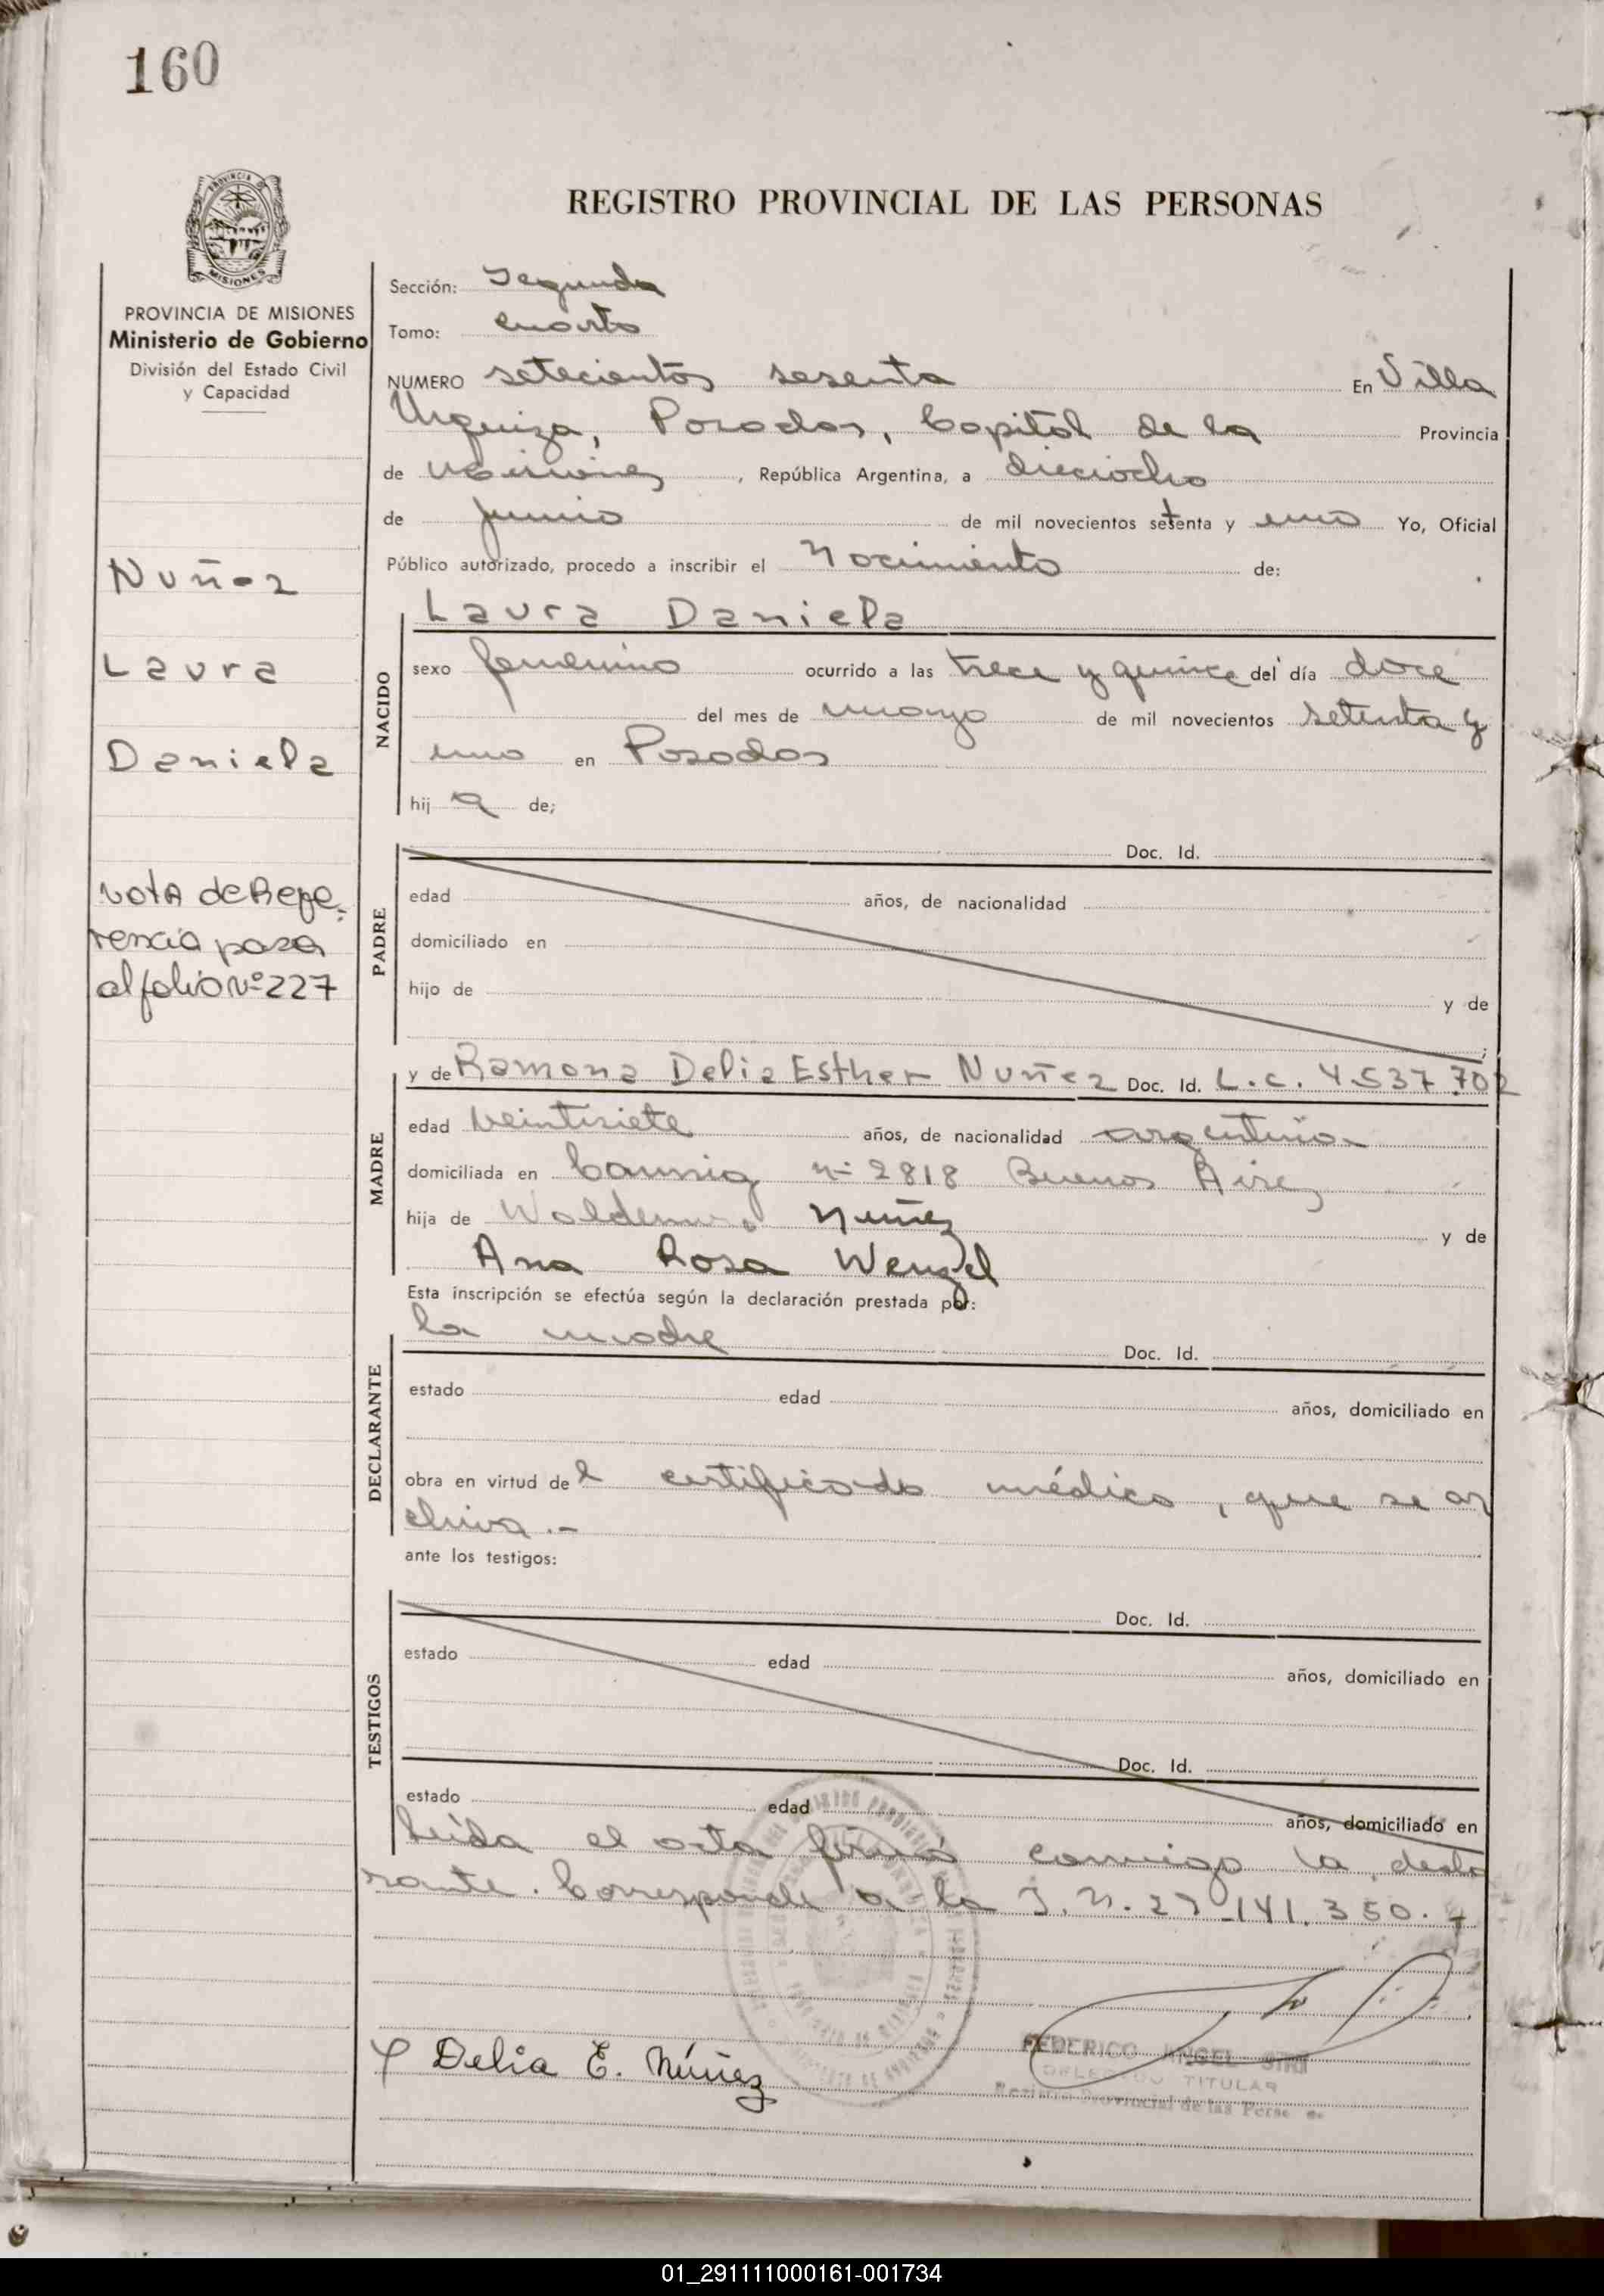 160
REGISTRO PROVINCIAL DE LAS PERSONAS
PROVINCIA DE MISIONES
Ministerio de Gobierno
División del Estado Civil
y Capacidad
Nuñez
Laura
Daniela
Nota de Refe-
rencia pasa
al folio Nº 227
Sección: Segunda
Tomo: cuarto
NUMERO setecientos sesenta En Villa
Urquiza, Posadas, Capital de la Provincia
de Misiones, República Argentina, a dieciocho
de junio de mil novecientos setenta y uno Yo, Oficial
Público autorizado, procedo a inscribir el Nacimiento de:
NACIDO
Laura Daniela
sexo femenino ocurrido a las trece y quince del día doce
del mes de marzo de mil novecientos setenta y
uno en Posadas
hij a de;
PADRE
Doc. Id.
edad años, de nacionalidad
domiciliado en
hijo de y de
MADRE
y de Ramona Delia Esther Nuñez Doc. Id. L.c. 4.537.702
edad veintisiete años, de nacionalidad argentina
domiciliada en Canning nº 2818 Buenos Aires
hija de Waldemaro Nuñez y de
Ana Rosa Wenzel
Esta inscripción se efectúa según la declaración prestada por:
DECLARANTE
la madre Doc. Id.
estado edad años, domiciliado en
obra en virtud de l certificado médico, que se ar
chiva.-
ante los testigos:
TESTIGOS
Doc. Id.
estado edad años, domiciliado en
Doc. Id.
estado edad años, domiciliado en
Leída el acta firmó conmigo la decla
rante. Corresponde a la I.N. 27-141.350.-
Delia E. Núñez
FEDERICO ANGEL
TITULAR
Registro Provincial de las Perso
01_291111000161-001734